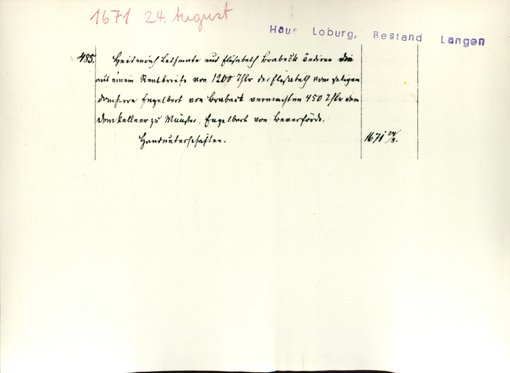 1671 24. August
Haus Loburg, Bestand Langen
485. Heidenrich Letmate und Elisabeth Brabeck cediren die
mit einem Rentbriefe von 1200 Thlr der Elisabeth vom seligen
Domherrn Engelbert von Brabeck vermachten 450 Thlr dem
Domkellner zu Münster, Engelbert von Beverförde.
Handunterschriften.
1671 24/8.